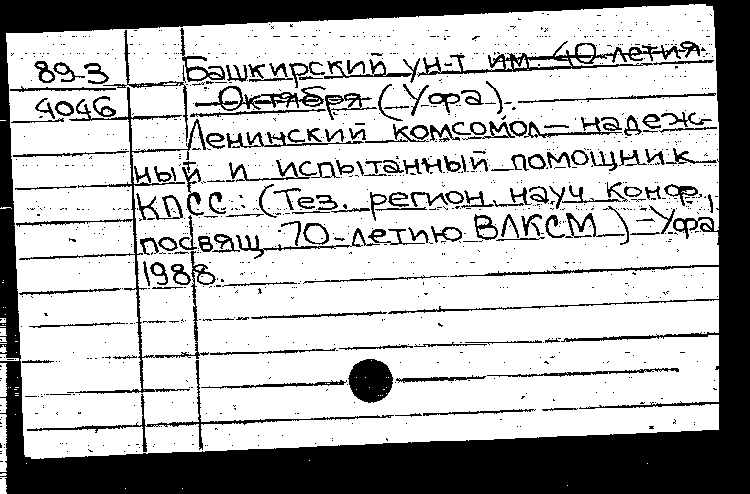 89-3 Башкирский ун-т им. 40-летия
4046 Октября (Уфа).
Ленинский комсомол – надеж-
ный и испытанный помощник
КПСС: (Тез. регион. науч. конф.,
посвящ. 70-летию ВЛКСМ) – Уфа,
1988.